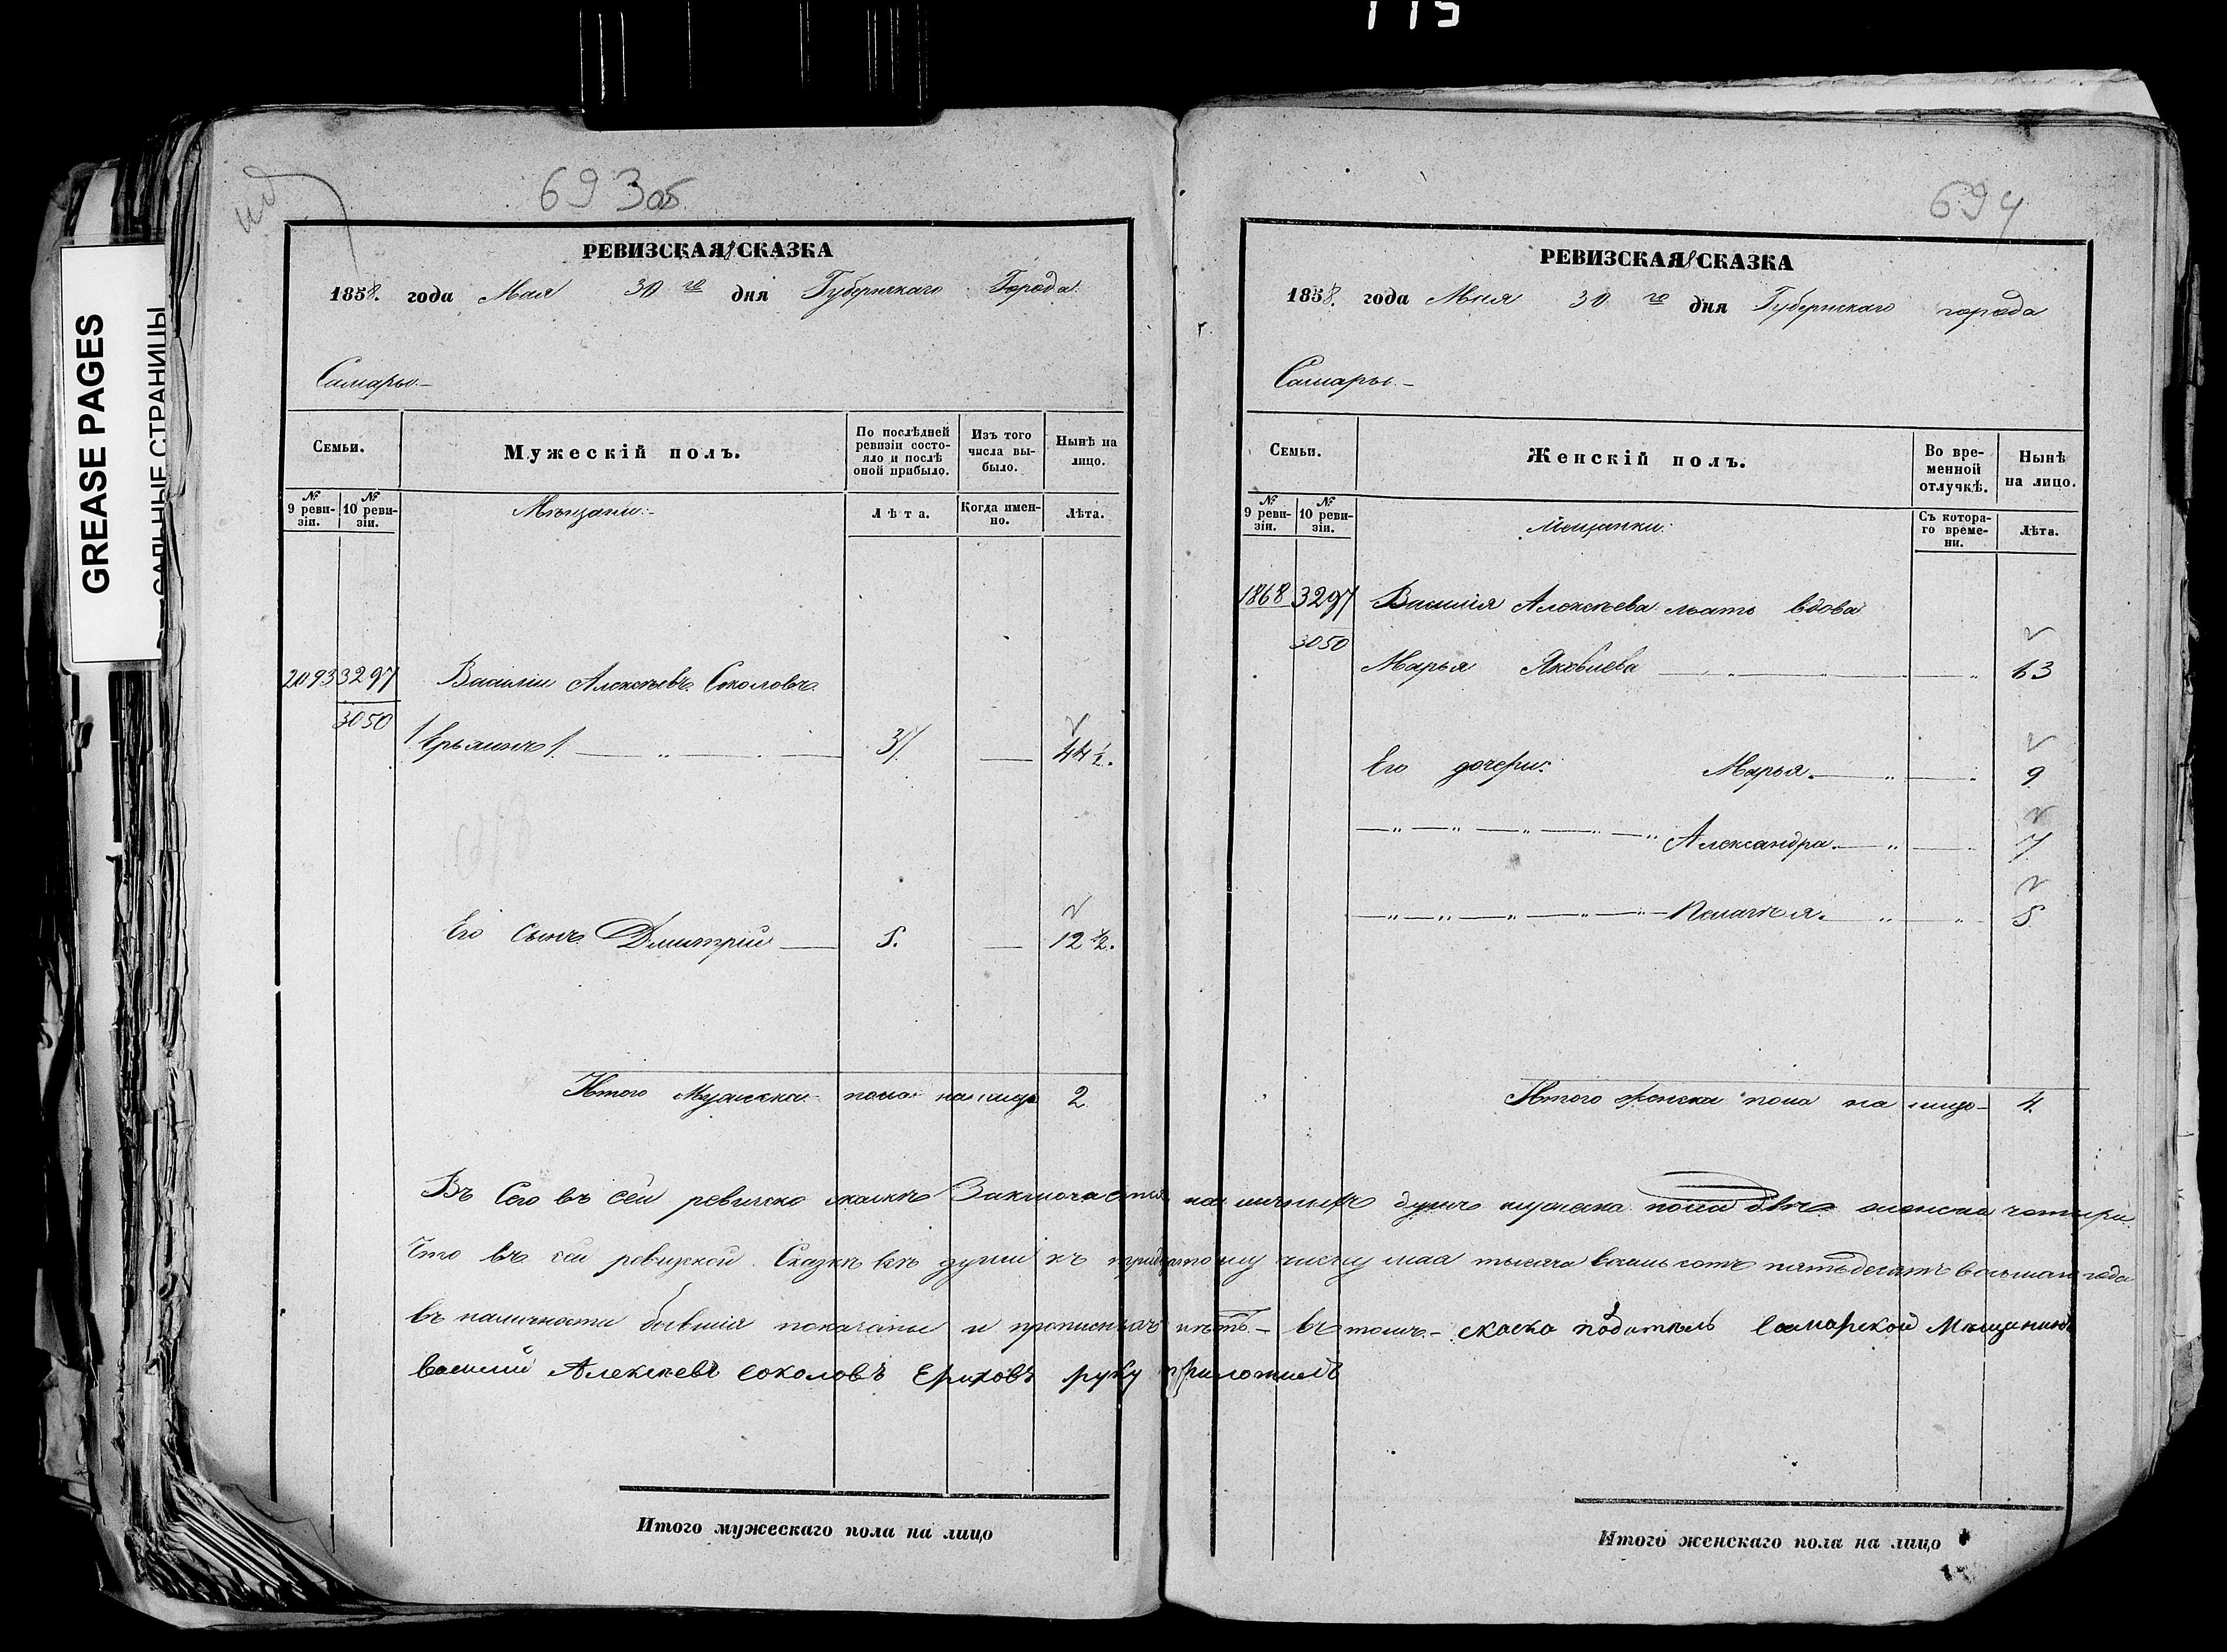 115
GREASE PAGES
САЛЬНЫЕ СТРАНИЦЫ
693об
РЕВИЗСКАЯ СКАЗКА
1858. года Мая 30 го дня Губернскаго Города
Самары
Семьи.
Мужескій полъ.
По послѣдней ревизіи состо-
яло и послѣ
оной прибыло.
Изъ того
числа вы-
было.
Нынѣ на
лицо.
№ 9 реви-
зіи.
№ 10 реви-
зіи.
Мѣщани:
Лѣта.
Когда имен-
но.
Лѣта.
2093 3297 Василіи Алексѣевъ Соколовъ
3050
44 ½.
Его сынъ Дмитрій 5. 12 ½.
Итого Мужска пола на лицо 2
694
РЕВИЗСКАЯ СКАЗКА
1858. года Мая 30 го дня Губернскаго города
Самары
Семьи.
Женскій полъ.
Во вре-
менной
отлучкѣ.
Нынѣ
на лицо.
№ 9 реви-
зіи.
№ 10 реви-
зіи.
Мещанки:
Съ котора-
го време-
ни.
Лѣта.
1868 3297 Василія Алексѣева мать вдова
3050
Марья Яковлева 63
Его дочери: Марья 9
Александра 7
Пелагѣя 5
Итого женска пола на лицо 4.
Въ Сего въ сеи ревиско Заключается душъ мужеска пола двѣ женска четыри
Что въ сеи ревизской Сказкѣ всѣ души къ тридцатому числу мая тысяча восемь сотъ пятьдесятъ восьмаго года
въ наличности бывшія показаны и нѣтъ въ томъ скаско податель Самарской Мѣщанинъ
василий Алексѣевъ соколовъ Ериховъ руку приложилъ
Итого мужескаго пола на лицо
Итого женскаго пола на лицо